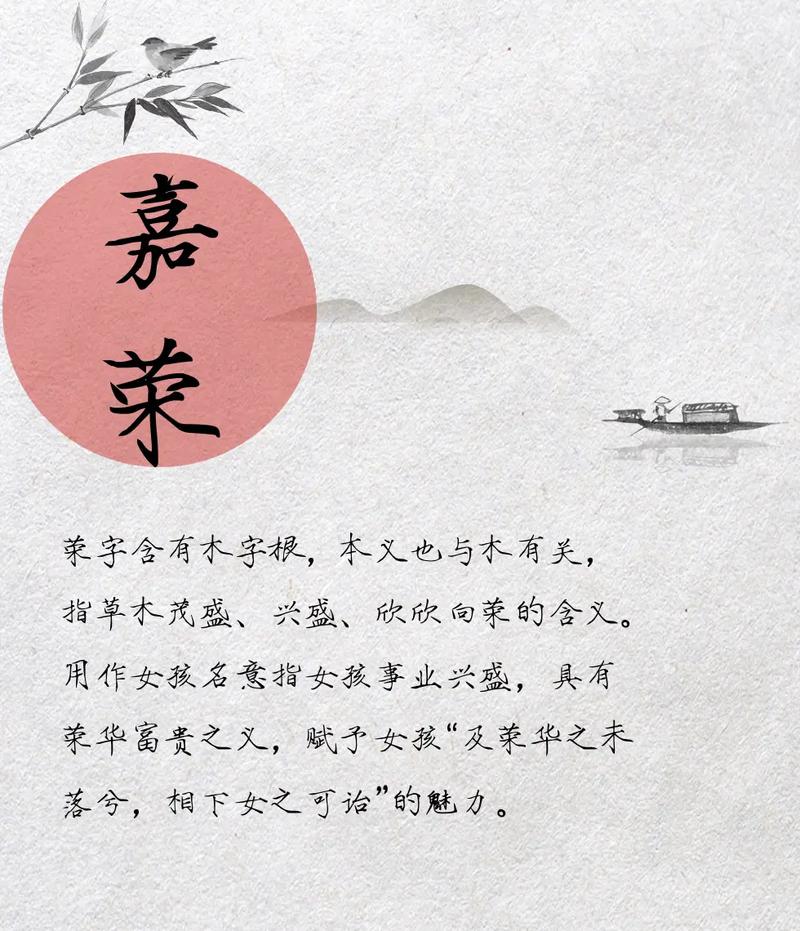 嘉荣
荣字含有木字根，本义也与木有关，
指草木茂盛、兴盛、欣欣向荣的含义。
用作女孩名意指女孩事业兴盛，具有
荣华富贵之义，赋予女孩“及荣华之未
落兮，相下女之可诒”的魅力。